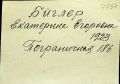 Биглер
Екатерина Егоровна
1923
Пограничная 18б